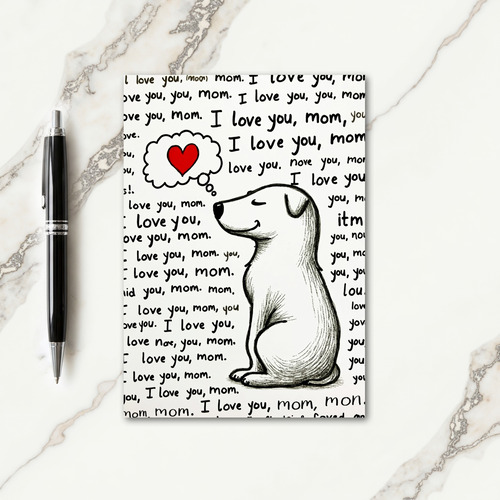 I love you, mom. I love you, mo
ove you, you, mom. I love you, mom,
ove you, mom. I love you, mom, you
ove. I love you, mom
you, love you, nove you, mom
s!. I love you,
love you, mom. you, m
I love you, itm
ove you, mom. you, nou
I love you, mom. you, you, mo
I love you, mom. you,
aid you, mom. mom, lou
I love you, mom, you love
ove you. I love you, you,
love you, mom. you
I love you, mom. you
I love you, mom. you
you, I love you, mom.
mom, mom. I love you, mom, mom.